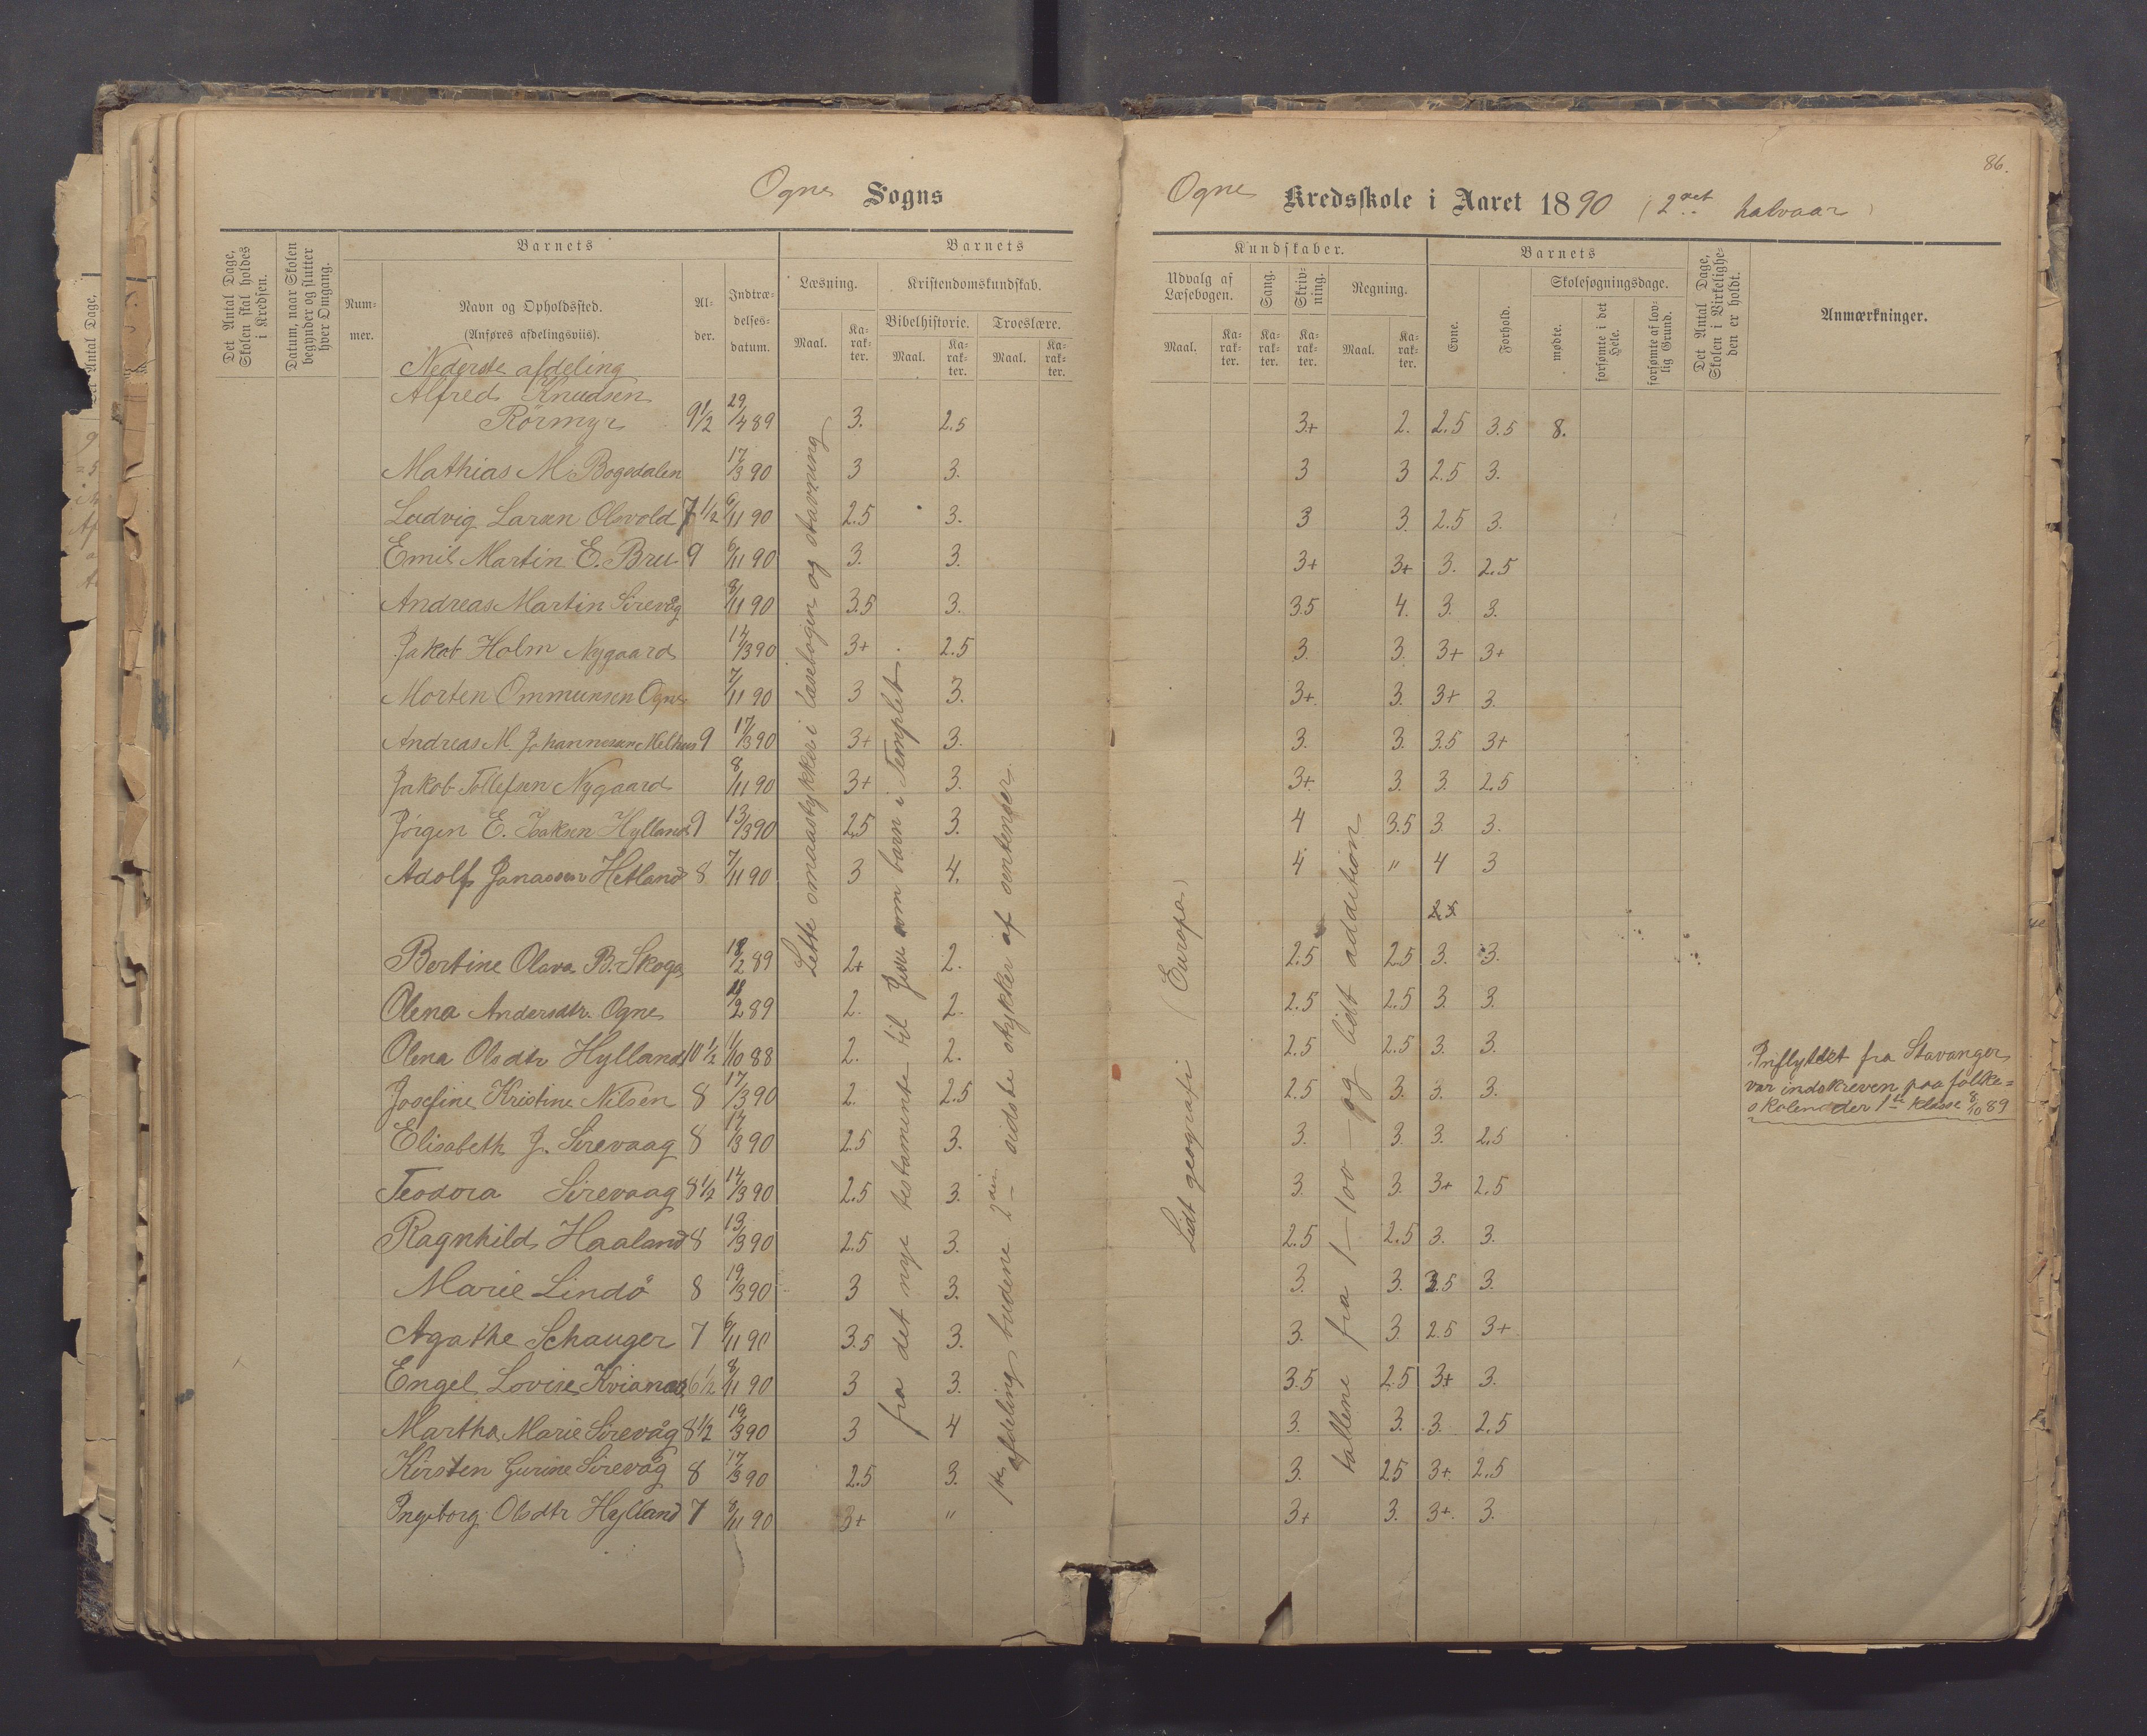 Ogne Sogns
Det Antal Dage, Skolen skal holdes i Kredsen.
Datum, naar Skolen begynder og slutter hver Omgang.
Barnets
Num-
mer.
Navn og Opholdssted.
(Anføres afdelingsviis).
Al-
der.
Indtræ-
delses-
datum.
Barnets
Læsning.
Maal.
Ka-
rak-
ter.
Kristendomskundskab.
Bibelhistorie.
Maal.
Ka-
rak-
ter.
Troeslære.
Maal.
Ka-
rak-
ter.
Nederste afdeling
Alfred Knudsen
Rörmyr 9 1/2 29/4 89 3. 2.5
Mathias M. Bogedalen 17/3 90 3 3.
Ludvig Larsen Olevold 7 1/2 6/11 90 2.5 3.
Emil Martin E. Bru 9 6/11 90 3. 3.
Andreas Martin Sirevåg 8/11 90 3.5 3.
Jakob Holm Nygaard 14/3 90 3+ 2.5
Morten Ommunsen Ogne 7/11 90 3 3.
Andreas M. Johannesen Melhus 9 17/3 90 3+ 3.
Jakob Tollefsen Nygaard 8/11 90 3+ 3.
Jörgen E. Isaksen Hylland 9 13/3 90 2.5 3.
Adolf Janassen Hetland 8 7/11 90 3 4.
Bertine Olava B. Skoga 18/2 89 2+ 2.
Olena Andersdtr. Ogne 18/2 89 2. 2.
Olena Olsdtr Hylland 10 1/2 1/10 88 2. 2.
Josefine Kristine Nilsen 8 17/3 90 2. 2.5
Elisabeth J. Sirevaag 8 14/3 90 2.5 3.
Teodora Sirevaag 8 1/2 14/3 90 2.5 3.
Ragnhild Haaland 8 13/3 90 2.5 3.
Marie Lindö 8 19/3 90 3 3.
Agathe Schauger 7 6/11 90 3.5 3.
Engel Lovise Kvianes 6 1/2 8/11 90 3 3.
Martha Marie Sirevåg 8 1/2 19/3 90 3 4
Kirsten Gurine Sirevåg 8 17/3 90 2.5 3.
Ingeborg Olsdtr Hylland 7 8/11 90 3+ "
Lette smaastykker i læsebogen og stavning
fra det nye testamente til Jesu som barn i Templet.
1ste afdeling, budene 2den – sidste stykker af sentenser.
86.
Ogne Kredsskole i Aaret 1890 (2det halvaar)
Kundskaber.
Udvalg af
Læsebogen.
Maal.
Ka-
rak-
ter.
Sang.
Ka-
rak-
ter.
Skriv-
ning.
Ka-
rak-
ter.
Regning.
Maal.
Ka-
rak-
ter.
Barnets
Evne.
Forhold.
Skolesøgningsdage.
mødte.
forsømte i det Hele.
forsømte af lov-
lig Grund.
Det Antal Dage, Skolen i Virkelighe-
den er holdt.
Anmærkninger.
3+ 2. 2.5 3.5 8.
3 3 2.5 3.
3 3. 2.5 3.
3+ 3+ 3. 2.5
3.5 4. 3. 3.
3. 3. 3+ 3+
3+. 3. 3+ 3.
3. 3. 3.5 3+
3+. 3. 3. 2.5
4 3.5 3. 3.
4 " 4 3
2.5
2.5 2.5 3. 3.
2.5 2.5 3. 3.
2.5 2.5 3. 3.
2.5 3. 3. 3.
3. 3. 3. 2.5
3. 3. 3+ 2.5
2.5 2.5 3. 3.
3. 3. 3.5 3.
3. 3. 2.5 3+
3.5 2.5 3+ 3.
3. 3. 3. 2.5
3. 2.5 3+. 2.5
3+ 3. 3+. 3.
Lidt geografi (Europa)
tallene fra 1–100 – og lidt addition
Indflyttet fra Stavanger
var indskreven paa folke=
skolen der 1ste klasse 8/10 89